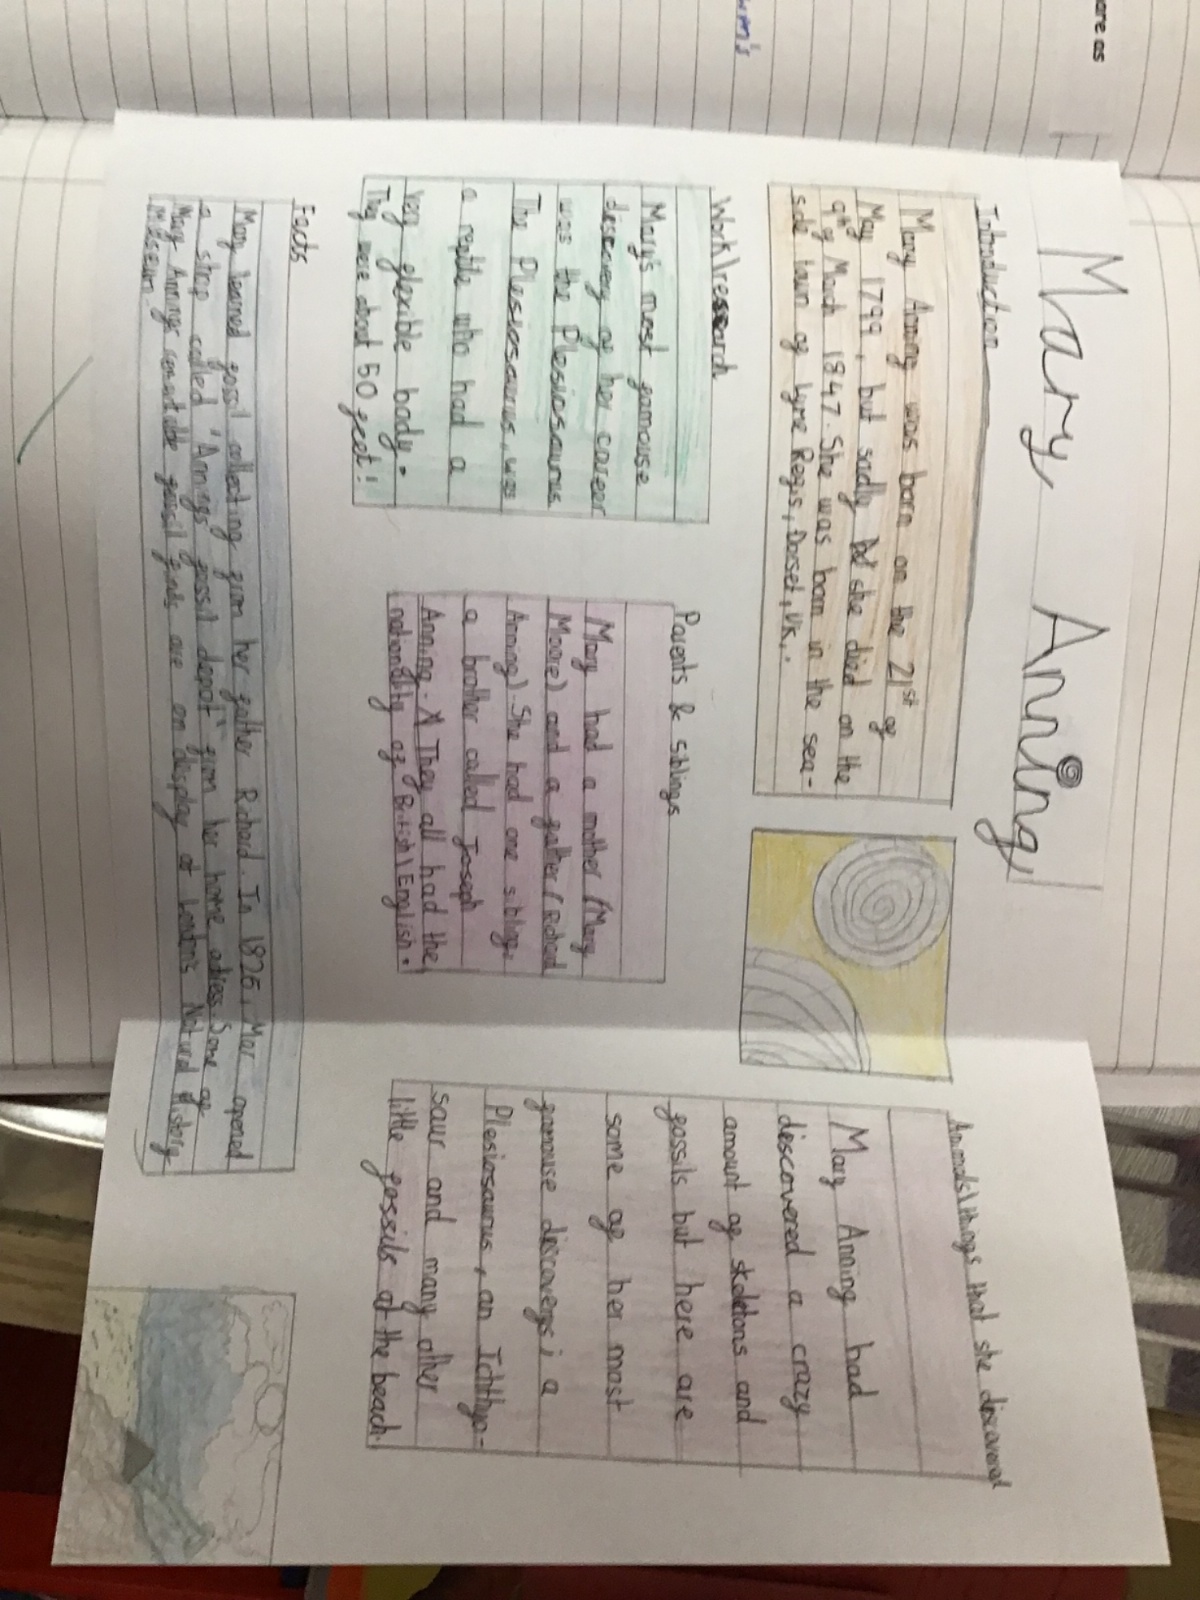 Mary Anning
Introduction
Mary Anning was born on the 21st of
May 1799, but sadly she died on the
9th of March 1847. She was born in the sea-
side town of Lyme Regis, Dorset, UK.
Work\research
Mary's most famouse
descovery of her career
was the Plesiosaurus.
The Plesiosaurus, was
a reptile who had a
very flexible body.
They were about 50 feet!
Parents & siblings
Mary had a mother (Mary
Moore) and a father (Richard
Anning). She had one sibling.
a brother called Joseph
Anning. They all had the
nationality of British\English.
Animals\things that she discovered
Mary Anning had
discovered a crazy
amount of skeletons and
fossils but here are
some of her most
famouse discoverys; a
Plesiosaurus, an Ichthyo-
saur and many other
little fossils at the beach.
Facts
Mary learned fossil collecting from her father Richard. In 1826, Mar opened
a shop called "Annings fossil depot" from her home adress. Some of
Mary Annings fossil finds are on display at London's Natural History
Museum.
are as